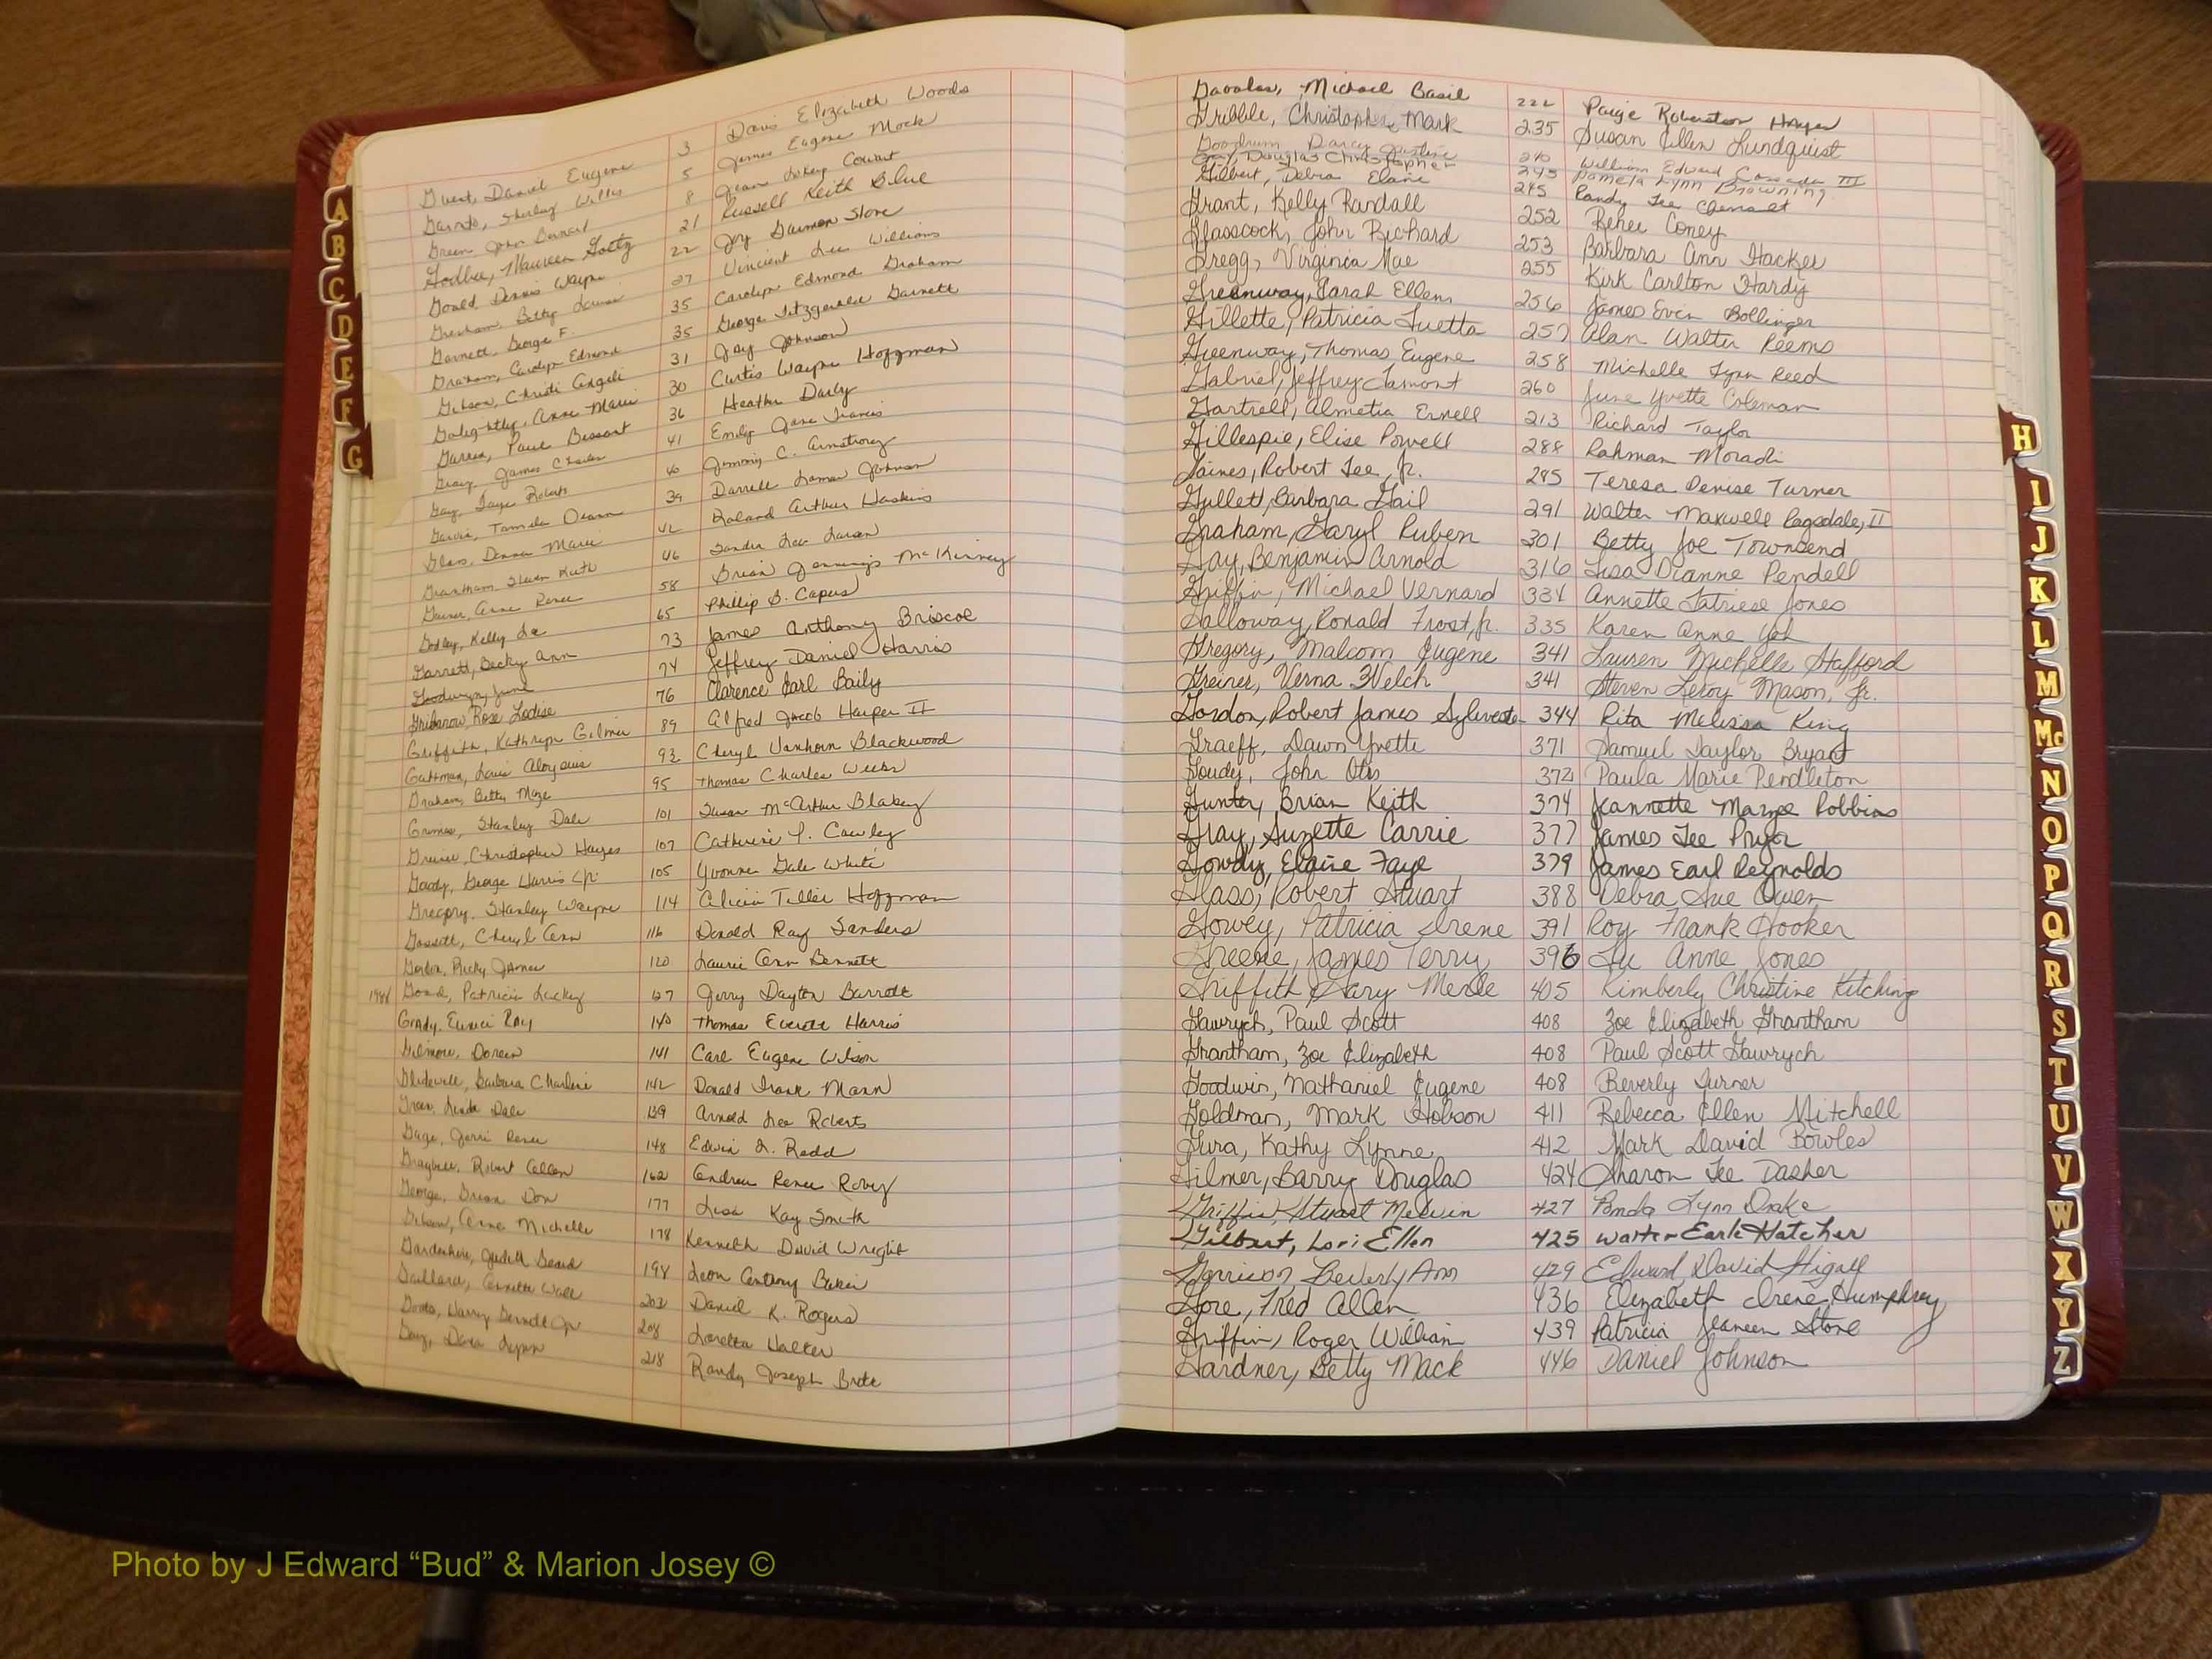 Guest, Daniel Eugene 3 Davis Elizabeth Woods
Garnto, Shirley Willis 5 James Eugene Mock
Green John Bernard 8 Jean Cowart
Godbee, Maureen Goetz 21 Russell Keith Blue
Gould Dennis Wayne 22 Joy Daemon Stone
Gresham, Betty Louise 27 Vincient Lee Williams
Garnett, George F. 35 Carolyn Edmond Graham
Graham, Carolyn Edmond 35 George Fitzgerald Garnett
Gibson, Christi Angeli 31 Jay Johnson
Golightly, Anne Marie 30 Curtis Wayne Hoffman
Garren, Paul Bessart 36 Heather Darly
Gray, James Charles 41 Emily Jane Francis
Gay, Faye Roberts 40 Jimmy C. Armstrong
Garvin, Tamela Deann 39 Darrell Lamar Johnson
Glass, Donna Marie 42 Roland Arthur Haskins
Grantham, Susan Ruth 46 Sandra Lee Larsen
Garner, Anne Renee 58 Brian Jennings McKinney
Godley, Kelly Le 65 Phillip S. Capers
Garrett, Becky Ann 73 James Anthony Briscoe
Goodwyn, June 74 Jeffrey Daniel Harris
Rose Lodise 76 Clarence Earl Baily
Griffith, Kathryn Gilmer 89 Alfred Jacob Harper II
Guttman, Louis Aloysius 93 Cheryl Vanhorn Blackwood
Graham, Betty Maze 95 Thomas Charles Weeks
Grimes, Stanley Dale 101 Susan McArthur Blakey
Greiner, Christopher Hayes 107 Catherine P. Cawley
Goody, George Harris Jr. 105 Yvonne Gale White
Gregory, Stanley Wayne 114 Alicia Tillie Hoffman
Gossett, Cheryl Ann 116 Donald Ray Sanders
Gordon, Ricky James 120 Laurie Ann Bennett
Goad, Patricia Luckey 127 Jerry Dayton Barrett
Grady, Eunice Ray 140 Thomas Everett Harris
Gilmore, Doreen 141 Carl Eugene Wilson
Glidewell, Barbara Charlene 142 Donald Frank Mann
Green, Linda Dale 139 Arnold Lee Roberts
Gage, Jerri Renee 148 Edwin L. Redd
Graybell, Robert Allen 162 Andrea Renee Robey
George, Brian Don 177 Lisa Kay Smith
Gibson, Anne Michelle 178 Kenneth David Wright
Gardenhire, Judith Beard 194 Leon Anthony Baker
Gaillard, Annette Wall 203 Daniel K. Rogers
Goots, Harry Berndt Jr. 208 Loretta Walker
Gay, Dora Lynn 218 Randy Joseph Brett
Michael Basil 222 Paige Robertson Harper
Gribble, Christopher Mark 235 Susan Ellen Lundquist
Goodrum Darcy Justine 240 William Edward III
Gay, Douglas Christopher 243 Pamela Lynn Browning
Gilbert, Debra Elaine 245 Randy Lee Chenault
Grant, Kelly Randall 252 Renee Coney
Glasscock, John Richard 253 Barbara Ann Hacker
Gregg, Virginia Mae 255 Kirk Carlton Hardy
Greenway, Sarah Ellen 256 James Even Bollinger
Gillette, Patricia Luetta 257 Alan Walter Reems
Greenway, Thomas Eugene 258 Michelle Lynn Reed
Gabriel, Jeffrey Lamont 260 June Yvette Coleman
Gartrell, Almetia Ernell 213 Richard Taylor
Gillespie, Elise Powell 288 Rahman Moradi
Gaines, Robert Lee, Jr. 285 Teresa Denise Turner
Gullett, Barbara Gail 291 Walter Maxwell Ragsdale, II
Graham, Daryl Ruben 301 Betty Joe Townsend
Gay, Benjamin Arnold 316 Lisa Dianne Pendell
Griffin, Michael Vernard 334 Annette Latriese Jones
Galloway, Ronald Frost, Jr. 335 Karen Anne Yoh
Gregory, Malcom Eugene 341 Lauren Michelle Stafford
Greiner, Verna Welch 341 Steven Leroy Mason, Jr.
Gordon, Robert James Sylvester 344 Rita Melissa King
Graeff, Dawn Yvette 371 Samuel Taylor Bryant
Goudy, John Otis 372 Paula Marie Pendleton
Gunter, Brian Keith 374 Jeannette Marye Robbins
Gray, Suzette Carrie 377 James Lee Pryor
Gowdy, Elaine Faye 379 James Earl Reynolds
Glass, Robert Stuart 388 Debra Sue Owen
Gowey, Patricia Irene 391 Roy Frank Hooker
Greene, James Terry 396 Lu Anne Jones
Griffith Gary Merle 405 Kimberly Christine Kitching
Gawrych, Paul Scott 408 Zoe Elizabeth Grantham
Grantham, Zoe Elizabeth 408 Paul Scott Gawrych
Goodwin, Nathaniel Eugene 408 Beverly Turner
Goldman, Mark Hobson 411 Rebecca Ellen Mitchell
Gura, Kathy Lynne 412 Mark David Bowles
Gilmer, Barry Douglas 424 Sharon Lee Dasher
Griffin, Stuart Melvin 427 Ponda Lynn Drake
Gilbert, Lori Ellen 425 Walter Earle Hatcher
Garrison, Beverly Ann 429 Edward David Higall
Gore, Fred Allen 436 Elizabeth Irene Humphrey
Griffin, Roger William 439 Patricia Jeaneen Stone
Gardner, Betty Mack 446 Daniel Johnson
A
B
C
D
E
F
G
H
I
J
K
L
M
Mc
N
O
P
Q
R
S
T
U
V
W
X
Y
Z
Photo by J Edward “Bud” & Marion Josey ©